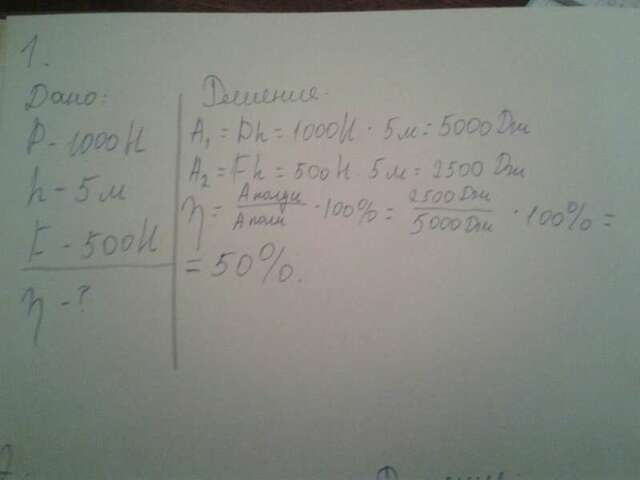 1.
Дано:
P - 1000 Н
h - 5 м
F - 500 Н
η - ?
Решение.
A₁ = Ph = 1000 Н · 5 м = 5000 Дж
A₂ = Fh = 500 Н · 5 м = 2500 Дж
η = Аполезн / Аполн · 100% = 2500 Дж / 5000 Дж · 100% =
= 50%.
2.